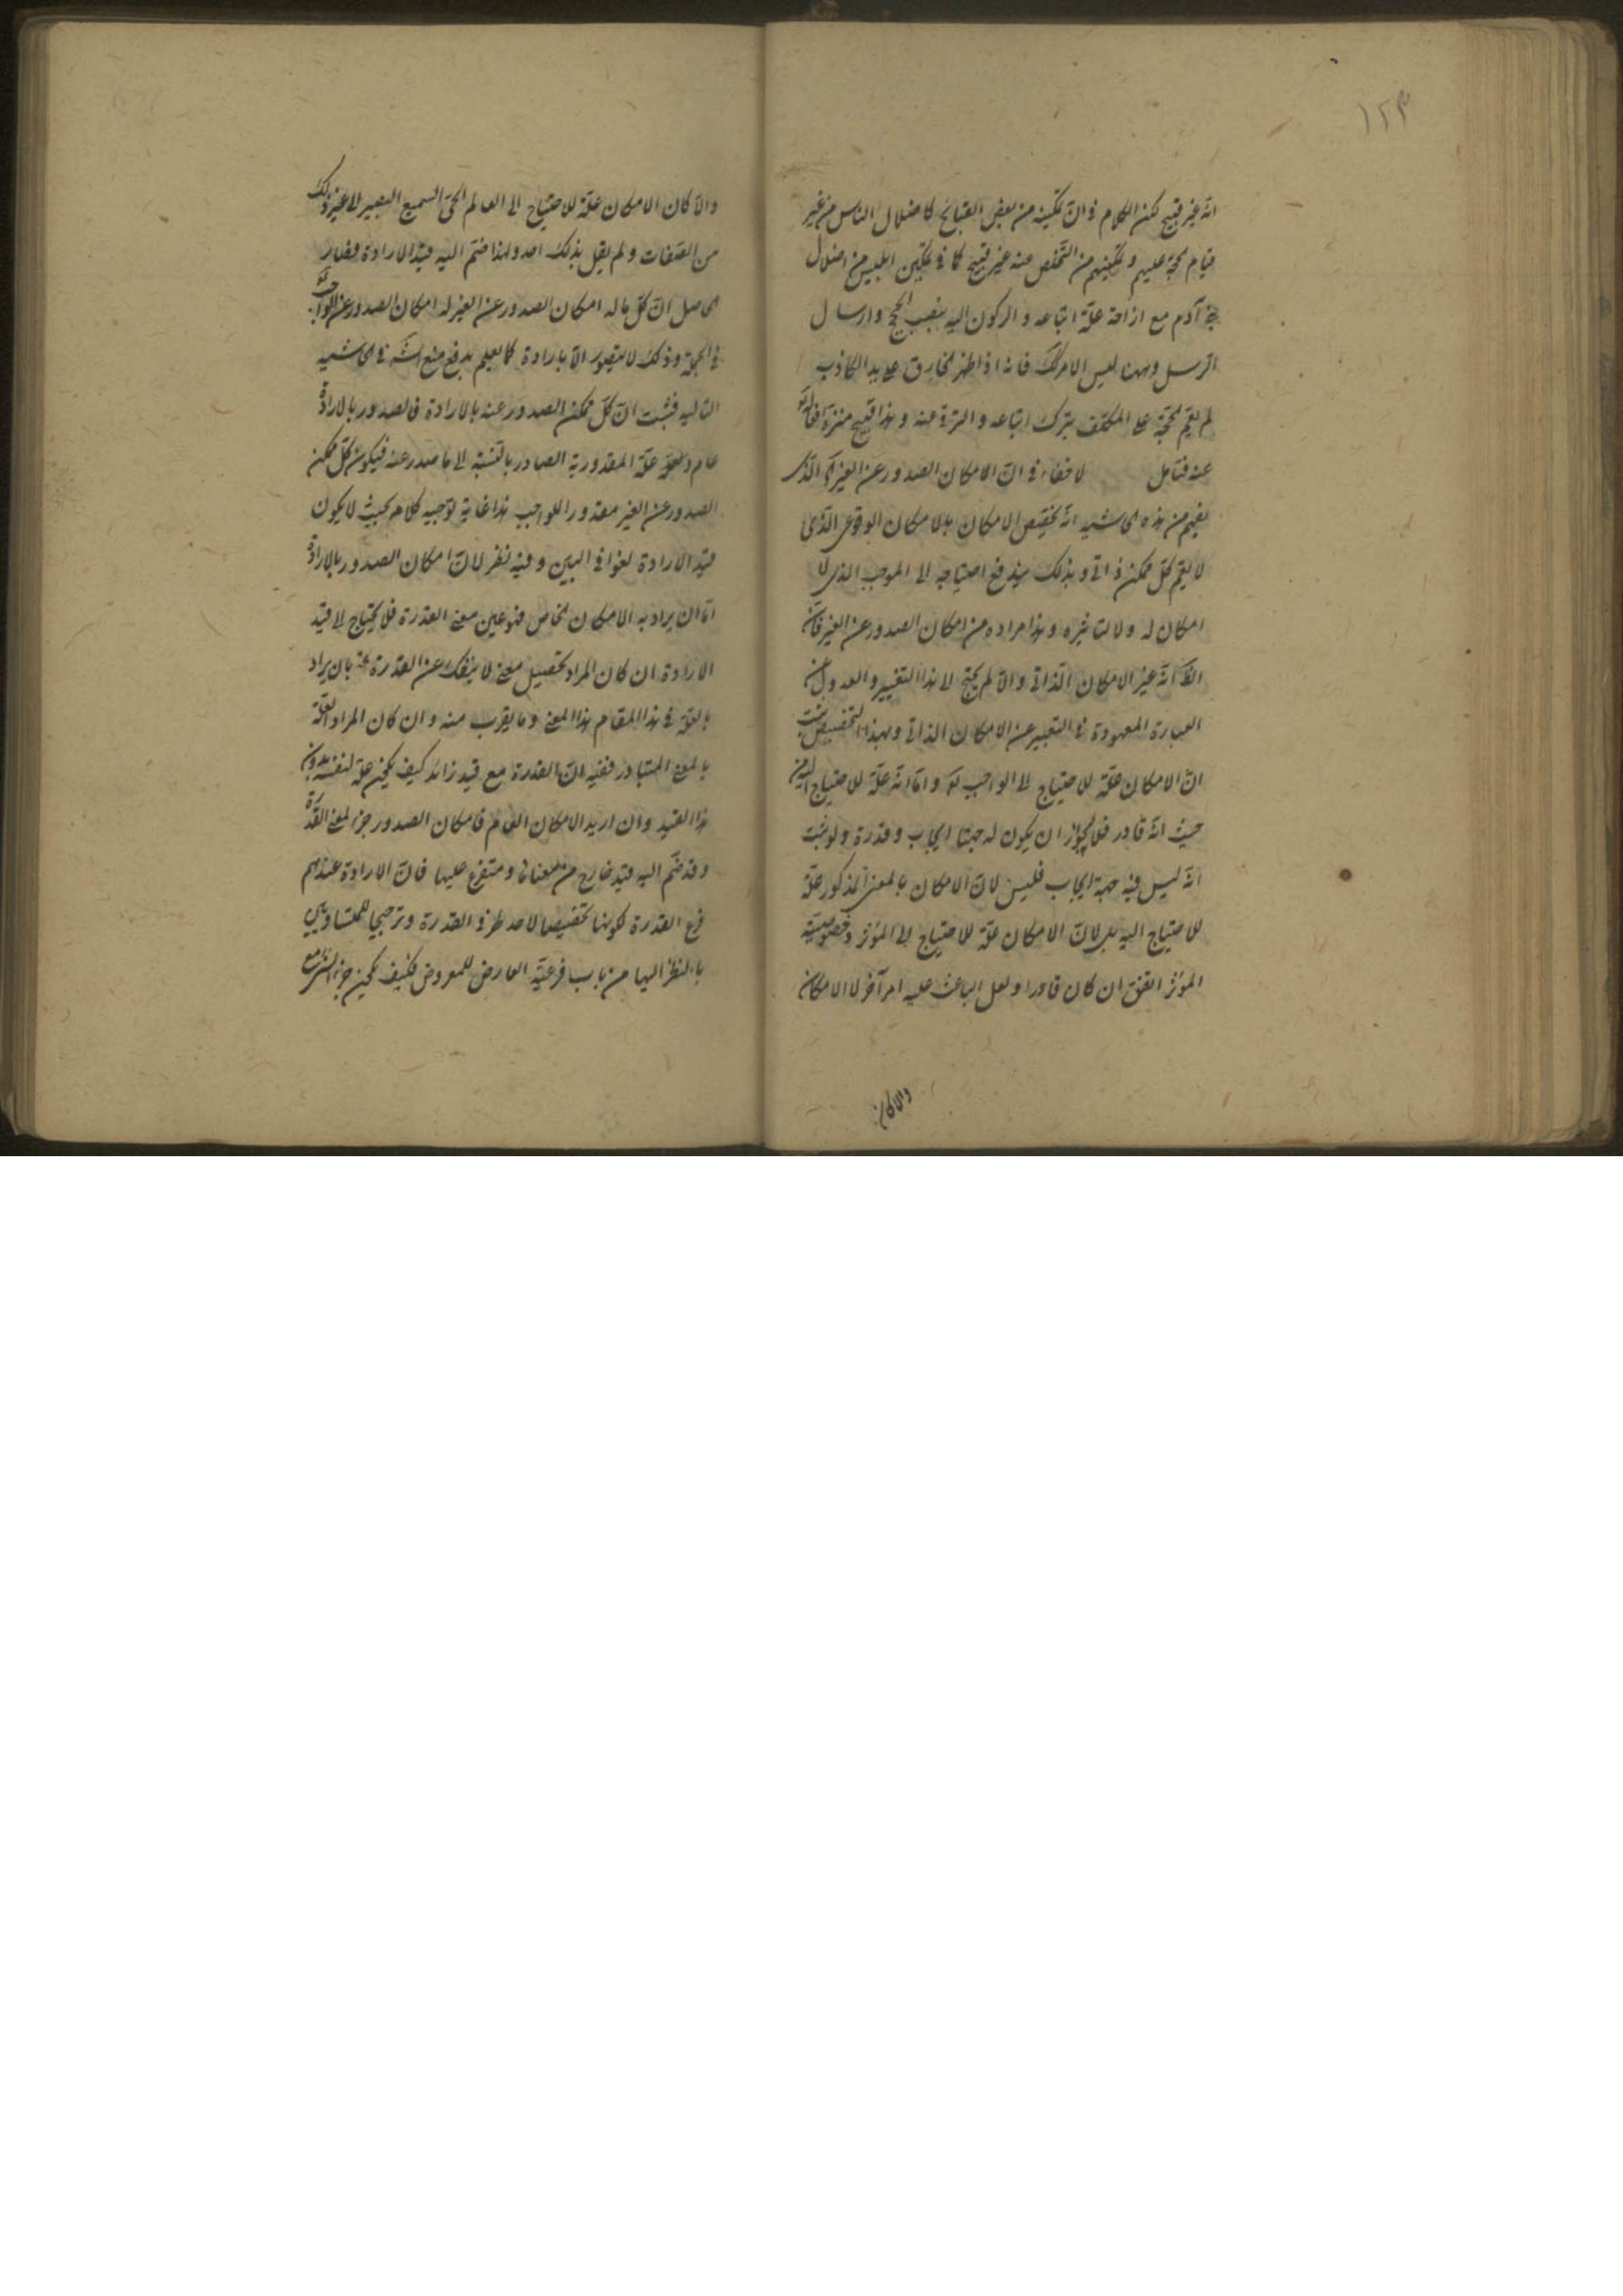 ١٢٣
انّه غير قبيح لكن الكلام فى انّ تمكينه من بعض القبائح كاضلال الناس من غير
قيام حجة عليهم و تمكينهم من التخلص عنه غير قبيح كما فى تمكين ابليس من اضلال
بنى آدم مع ازاحة علّة اتباعه و الركون اليه بنصب الحجج و ارسال
الرسل وههنا ليس الامر كك فانه اذا اظهر الخارق على يد الكاذب
لم يقم الحجّة على المكلّف بترك اتباعه و الترقى عنه و هذا قبيح منزه افعاله تع
عنه فتامل لا خفاء فى انّ الامكان الصدور عن الغير الذى
يفهم من هذه الحاشيه انّه تخصيص الامكان بالامكان الوقوعى الذى
لا يعمّ كلّ ممكن ذاتى و بذلك يندفع احتياجه الى الموجب الذى لا
امكان له و لا لتاثيره و هذا مراده من امكان الصدور عن الغير فانّ
الظ انّه غير الامكان الذاتى و الّا لم يحتج الى هذا التغيير و العدول عن
العبارة المعهودة فى التعبير عن الامكان الذاتى و بهذا التخصيص يثبت
انّ الامكان علّة للاحتياج الى الواجب تع و امّا انّه علّة للاحتياج اليه من
حيث انّه قادر فلا لجواز ان يكون له جهتا ايجاب و قدرة و لو ثبت
انّه ليس فيه جهة ايجاب فليس لانّ الامكان بالمعنى المذكور علّة
للاحتياج اليه بل لانّ الامكان علّة للاحتياج الى المؤثر و خصوصيّة
المؤثر اتفق ان كان قادرا و لعل الباعث عليه امر آخر لا الامكان
والا كان
والّا كان الامكان علّة للاحتياج الى العالم الحىّ السميع البصير الى غير ذلك
من الصفات و لم يقل بذلك احد و لهذا ضمّ اليه قيد الارادة فصار
الحاصل انّ كلّ ما له امكان الصدور عن الغير له امكان الصدور عن الواجب تع
فى الجملة و ذلك لا يتصور الّا بارادة كما يعلم بدفع منع الشه فى الحاشيه
التاليه فثبت انّ كلّ ممكن الصدور عنه بالارادة فالصدور بالارادة
عام و لعلّه علّة المقدورية الصادر بالنسبة الى ما صدر عنه فيكون كلّ ممكن
الصدور عن الغير مقدورا للواجب هذا غاية توجيه كلامه بحيث لا يكون
قيد الارادة لغوا فى البين و فيه نظر لانّ امكان الصدور بالارادة
امّا ان يراد به الامكان الخاص فهو عين معنى القدرة فلا يحتاج الى قيد
الارادة ان كان المراد تحصيل معنى لا ينفك عن القدرة بان يراد
بالعلّة فى هذا المقام هذا المعنى و ما يقرب منه و ان كان المراد العلّة
بالمعنى المتبادر ففيه انّ القدرة مع قيد زائد كيف يكون علّة لنفسه بدون
هذا القيد و ان اريد الامكان العام فامكان الصدور جزء لمعنى القدرة
و قد ضمّ اليه قيد خارج من معناها و متفرع عليها فانّ الارادة عندهم
فرع القدرة لكونها تخصيصا لاحد طرفى القدرة و ترجيحا للمتساويين
بالنظر اليها من باب فرعيّة العارض للمعروض فكيف يكون جزء الشئ مع